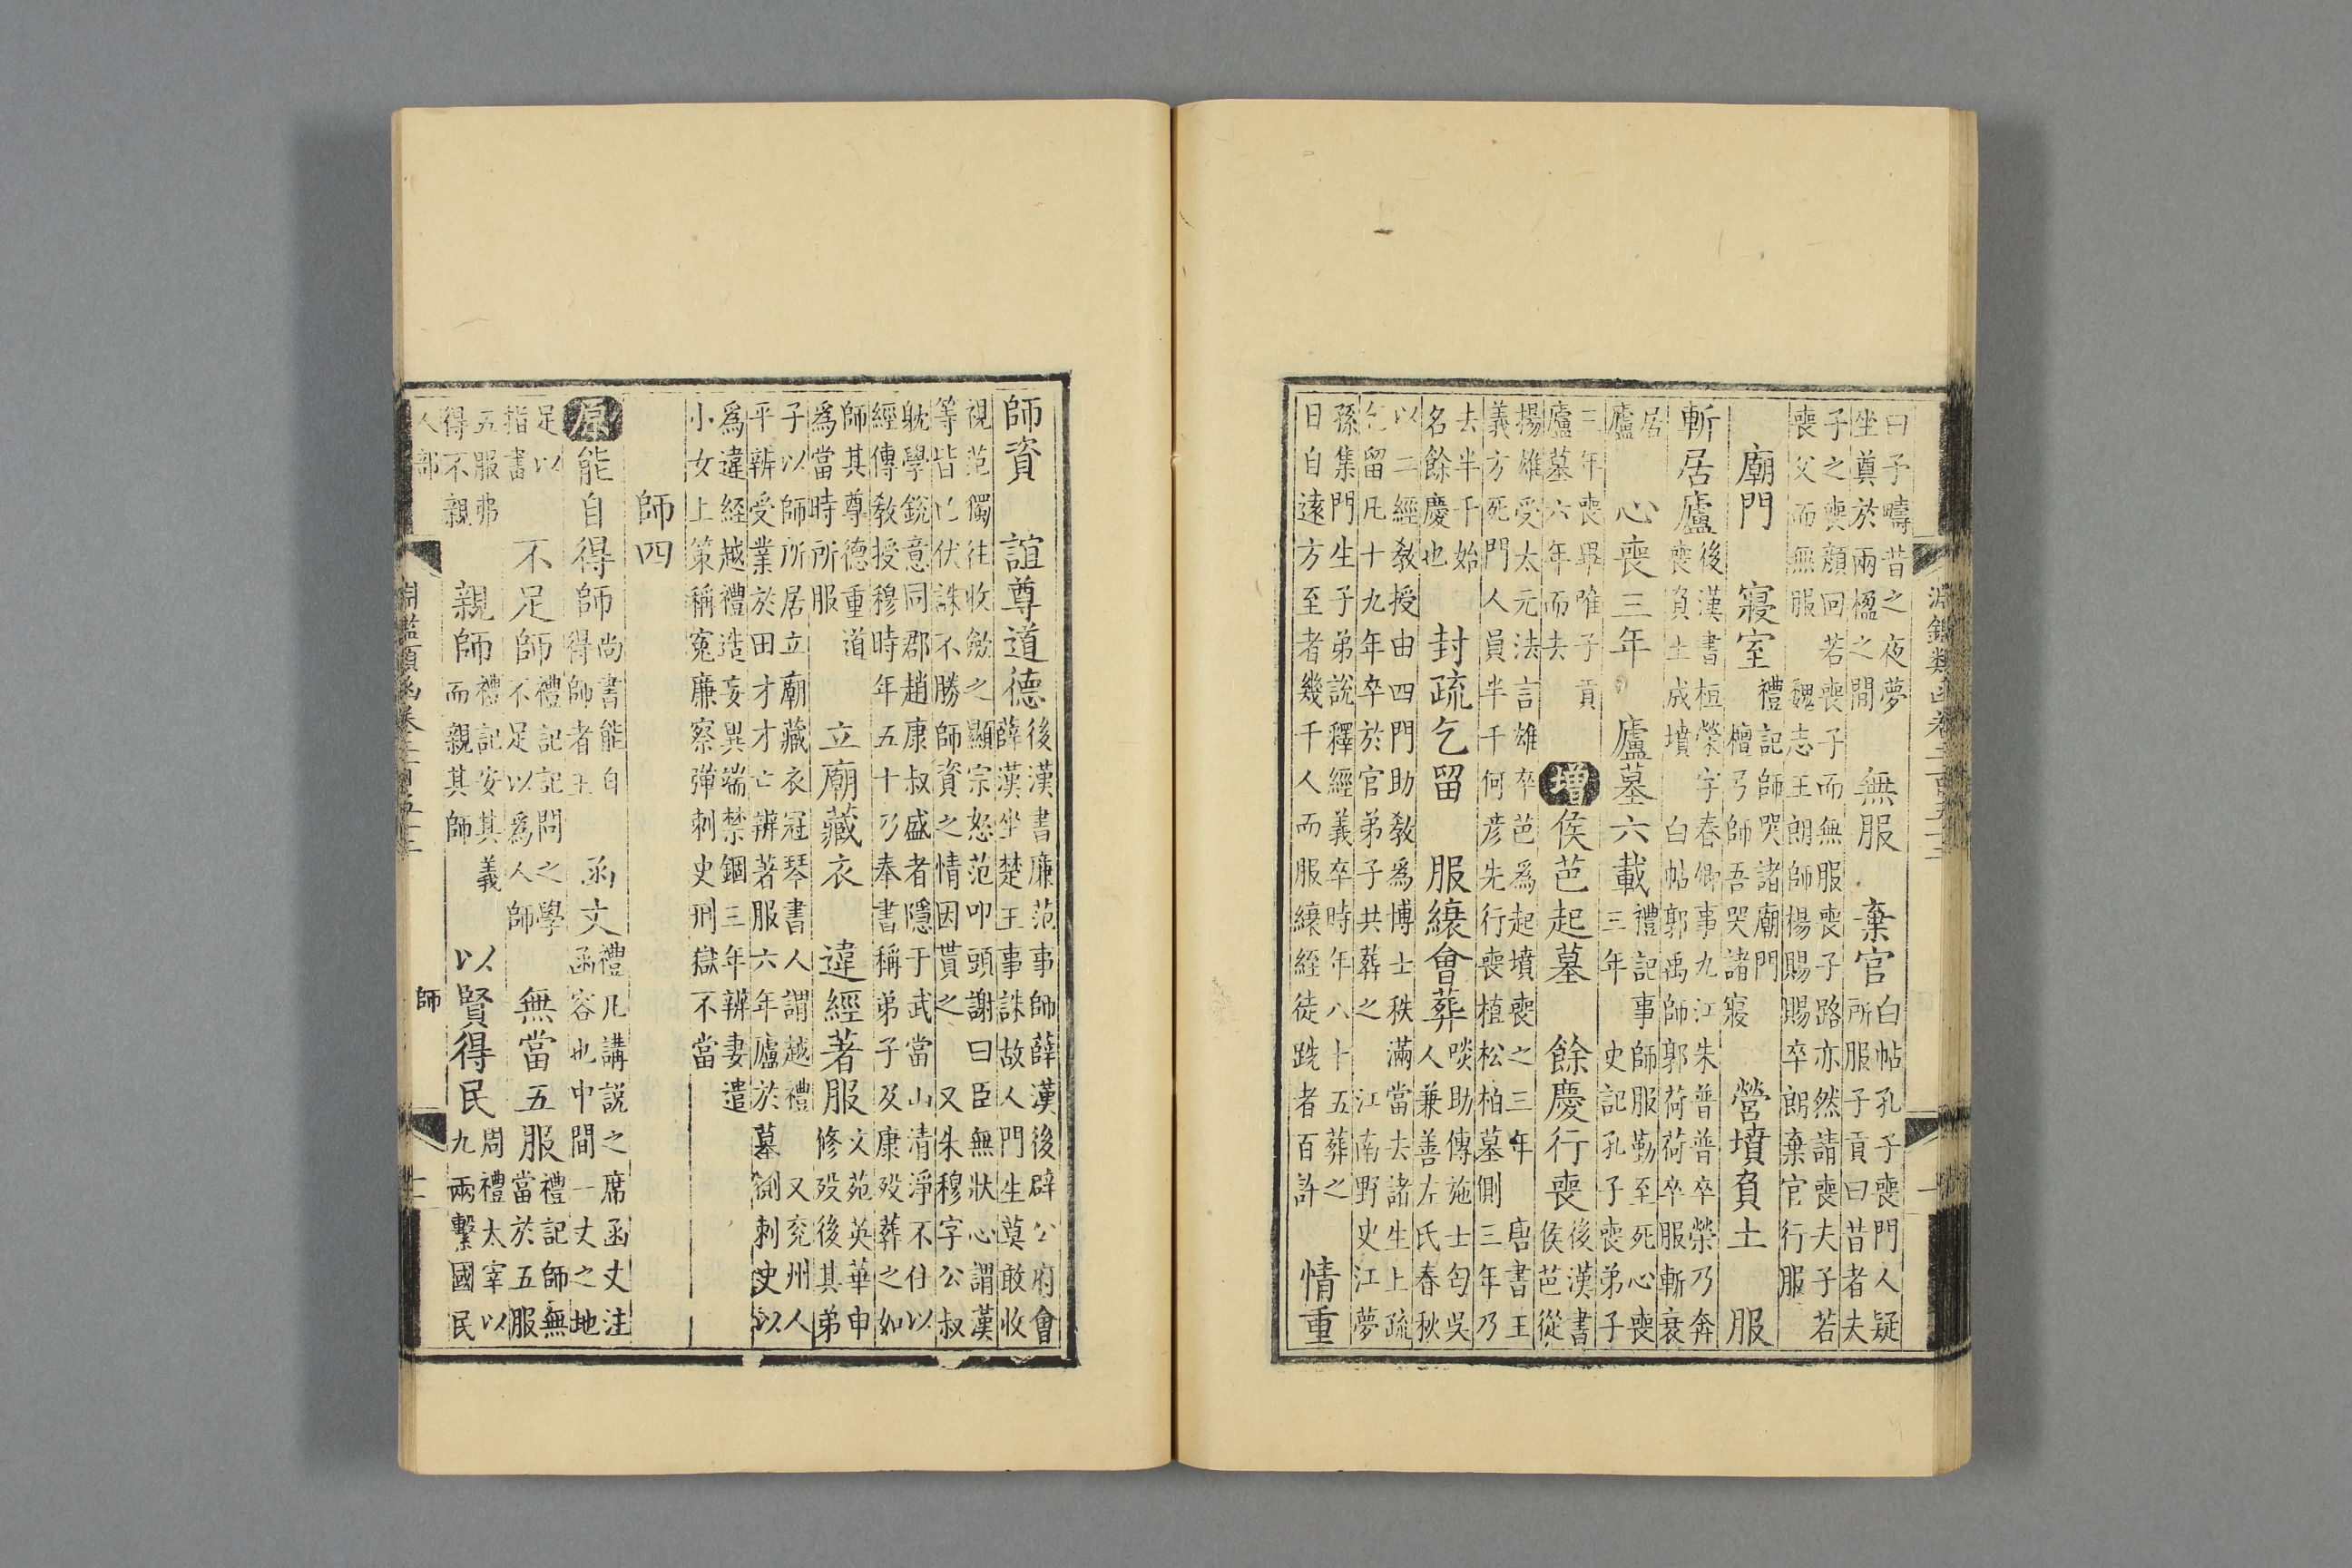 曰予疇昔之夜夢
坐奠於兩楹之間
無服　棄官
白帖孔子喪門人疑
所服子貢曰昔者夫
子之喪顏回若喪子而無服喪子路亦然請喪夫子若
喪父而無服　魏志王朗師楊賜賜卒朗棄官行服
廟門　寢室
禮記師哭諸廟門
檀弓師吾哭諸寢
營墳負土　服
斬居廬
後漢書桓榮字春卿事九江朱普普卒榮乃奔
喪負土成墳　白帖郭禹師郭荷荷卒服斬衰
居
廬
心喪三年　廬墓六載
禮記事師服勤至死心喪
三年　史記孔子喪弟子
三年喪畢唯子貢
廬墓六年而去
增　侯芭起墓　餘慶行喪
後漢書
侯芭從
揚雄受太元法言雄卒芭爲起墳喪之三年　唐書王
義方死門人員半千何彥先行喪植松柏墓側三年乃
去半千始
名餘慶也
封疏乞留　服縗會葬
啖助傳施士匄吳
人兼善左氏春秋
以二經敎授由四門助敎爲博士秩滿當去諸生上疏
乞留凡十九年卒於官弟子共葬之　江南野史江夢
孫集門生子弟說釋經義卒時年八十五葬之
日自遠方至者幾千人而服縗絰徒跣者百許
情重
師資　誼尊道德
後漢書廉范事師薛漢後辟公府會
薛漢坐楚王事誅故人門生莫敢收
視范獨往收斂之顯宗怒范叩頭謝曰臣無狀心謂漢
等皆已伏誅不勝師資之情因貰之　又朱穆字公叔
躭學銳意同郡趙康叔盛者隱于武當山清淨不仕以
經傳敎授穆時年五十乃奉書稱弟子及康歿葬之如
師其尊德重道
爲當時所服
立廟藏衣　違經著服
文苑英華申
修歿後其弟
子以師所居立廟藏衣冠琴書人謂越禮　又兖州人
平辨受業於田才才亡辨著服六年廬於墓側刺史以
爲違経越禮造妄異端禁錮三年辨妻遣
小女上策稱寃廉察彈刺史刑獄不當
師四
原　能自得師
尚書能自
得師者王
函丈
禮凡講說之席函丈注
函容也中間一丈之地
足以
指書
不足師
禮記記問之學
不足以為人師
無當五服
禮記師無
當於五服
五服弗
得不親
親師
禮記安其義
而親其師
以賢得民
周禮太宰以
九兩繫國民
人部
師